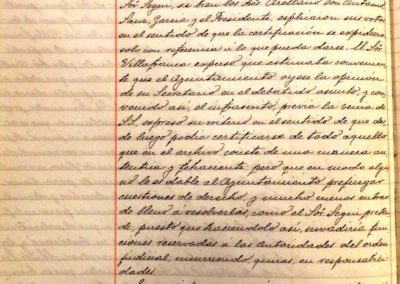 Sós Segui, si bien los Sres Arellano Don Antonio,
Saur, Garcia y el Presidente esplicaron sus votos
en el sentido de que la certificación se expidiera
solo con referencia á lo que pueda darse. El Sór
Villafranca expuso que estimaba convenien
te que el Ayuntamiento oyese la opinión
de su Secretario en el debatido asunto, y con
venido asi, el infrascrito, previa la venia de
S.S. espresó su criterio en el sentido de que des
de luego podia certificarse de todo aquello
que en el archivo conste de una manera au
tentica y fehaciente, pero que en modo algu
no le es dable al Ayuntamiento prejuzgar
cuestiones de derecho y mucho menos entrar
de lleno á resolverlas, como el Sór Segui, preten
de, puesto que haciendolo asi, invadiria fun
ciones reservadas á las autoridades del orden
judicial, incurriendo, quizas, en responsabili
dades.